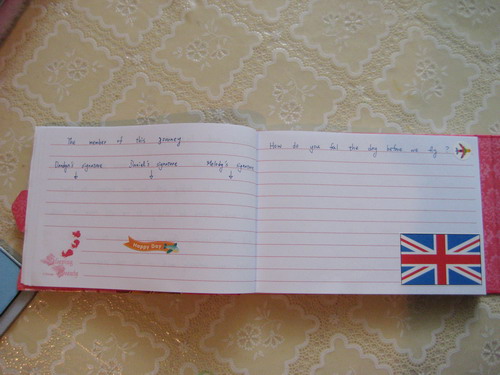 The member of this journey
Sandy's signature Sunial's signature Melody's signature
Happy Day
How do you feel the day before we fly ?